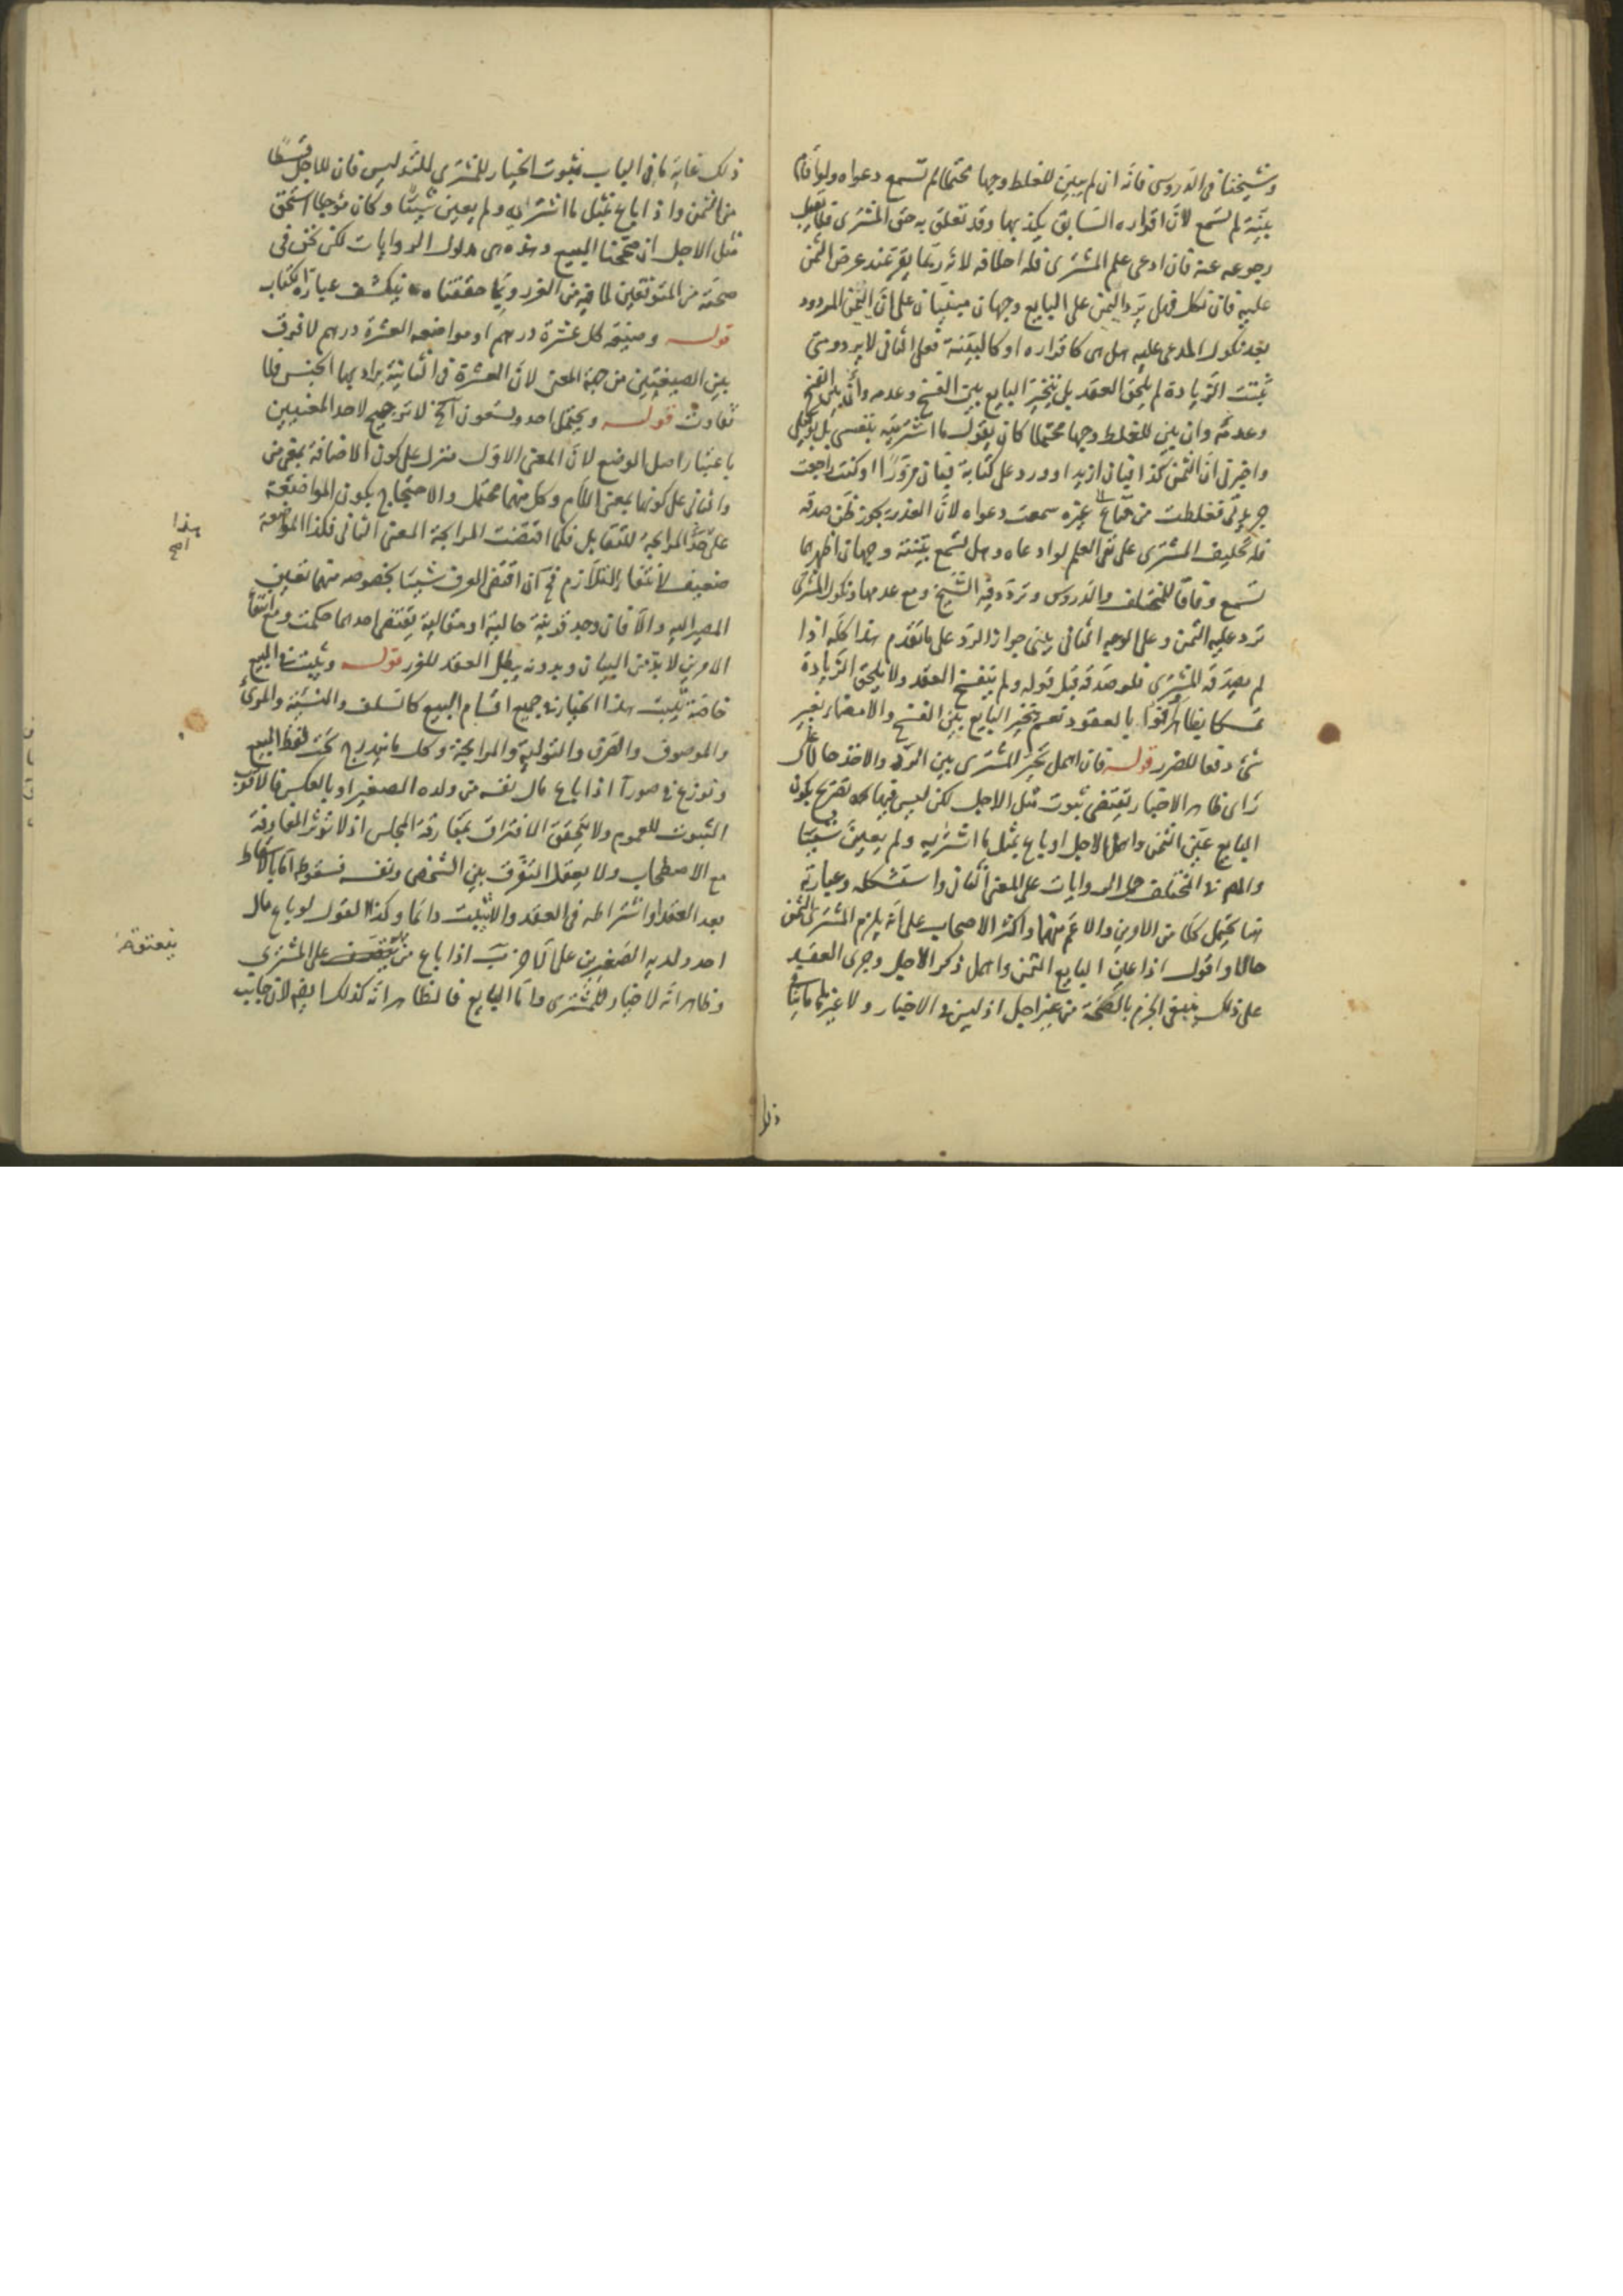 وشيخنا فى الدروس فانه ان لم يبين للغلط وجها محتملا لم تسمع دعواه ولو اقام
بينة لم تسمع لان اقراره السابق يكذبها وقد تعلق به حق المشترى فلا يقبل
رجوعه عنه فان ادعى علم المشترى فله احلافه لانه ربما يقر عند عرض اليمين
عليه فان نكل فهل يرد اليمين على البايع وجهان مبنيان على ان اليمين المردود
بعد نكول المدعى عليه هل هى كاقراره او كالبينة فعلى الثانى لا يرد ومتى
ثبتت الزيادة لم يلحق العقد بل يتخير البايع بين الفسخ وعدمه
وعدمه وان بين للغلط وجها محتملا كان يقول ما اشتريته بنفسى بل وكيلى
واخبرنى ان الثمن كذا فبان ازيد او ورد على كتابة فبان مزورا او كنت راجعت
جريدتى فغلطت من متاع الى غيره سمعت دعواه لان العذر يجوز ظن صدقه
فله تحليف المشترى على نفى العلم لو ادعاه وهل تسمع بينته وجهان اظهرهما
تسمع وفاقا للمختلف والدروس وتردد فيه الشيخ ومع عدمها ونكول المشترى
ترد عليه اليمين وعلى الوجه الثانى يبنى جواز الرد على ما تقدم هذا كله اذا
لم يصدقه المشترى فلو صدقه قبل قوله ولم ينفسخ العقد ولا يلحق الزيادة
تمسكا بظاهر اوفوا بالعقود نعم يتخير البايع بين الفسخ والامضاء بغير
شئ دفعا للضرر قوله فان اهمل تخير المشترى بين الرد والاخذ حالا على
راى ظاهر الاخبار يقتضى ثبوت مثل الاجل لكن ليس فيها تصريح بكون
البايع عين الثمن واهمل الاجل او باع بمثل ما اشتراه ولم يعين شيئا
والمص فى المختلف حمل الروايات على المعنى الثانى واستشكله وعبارته
هنا يحتمل كلا من الامرين والاعم منهما واكثر الاصحاب على انه يلزم المشترى الثمن
حالا واقول اذا عين البايع الثمن واهمل ذكر الاجل وجرى العقد
على ذلك ينبغى الجزم بالصحة من غير اجل اذ ليس فى الاخبار ولا غيرها ما ينافى
ذلك غاية ما فى الباب ثبوت الخيار للمشترى للتدليس فان للاجل قسطا
من الثمن واذا باع بمثل ما اشتراه ولم يعين شيئا وكان مؤجلا استحق
مثل الاجل ان صححنا البيع وهذه هى مدلول الروايات لكن نحن فى
صحته من المتوقفين لما فيه من الغرر وبما حققناه ينكشف عبارة الكتاب
قوله وصيغة كل عشرة درهم او مواضعه العشرة درهم لا فرق
بين الصيغتين من جهة المعنى لان العشرة فى الثانية يراد بها الجنس فلا
تفاوت قوله ويحتمل احد وتسعون آلخ لا ترجيح لاحد المعنيين
باعتبار اصل الوضع لان المعنى الاول منزل على كون الاضافة بمعنى من
والثانى على كونها بمعنى اللام وكل منهما محتمل والاحتجاج بكون المواضعة
على حد المرابحة للتقابل فكما اقتضت المرابحة المعنى الثانى فكذا المواضعة
ضعيف لانتفاء التلازم فح ان اقتضى العرف شيئا بخصوصه منهما تعين
المصير اليه والا فان وجد قرينة حالية او مقالية يقتضى احدهما حكمت ومع انتفاء
الامرين لا بد من البيان وبدونه يبطل العقد للغرر قوله ويثبت فى البيع
خاصة يثبت هذا الخيار فى جميع اقسام البيع كالسلف والنسيئة والمرئى
والموصوف والصرف والتولية والمرابحة وكل ما يندرج تحت لفظ البيع
ونوزع فى صورآ اذا باع مال نفسه من ولده الصغير او بالعكس فالاقرب
الثبوت للعموم ولا يتحقق الافتراق بمفارقة المجلس اذ لا تؤثر المفارقة
مع الاصطحاب ولا يعقل التفرق بين الشخص ونفسه فسقوطه اما بالاسقاط
بعد العقد او اشتراطه فى العقد والا يثبت دائما وكذا القول لو باع مال
احد ولديه الصغيرين على الآخر ب اذا باع من على المشترى
وظاهر انه لا خيار للمشترى واما البايع فالظاهر انه كذلك ايضا لان جانب
ذلك
هذا
اصح
ينعتق